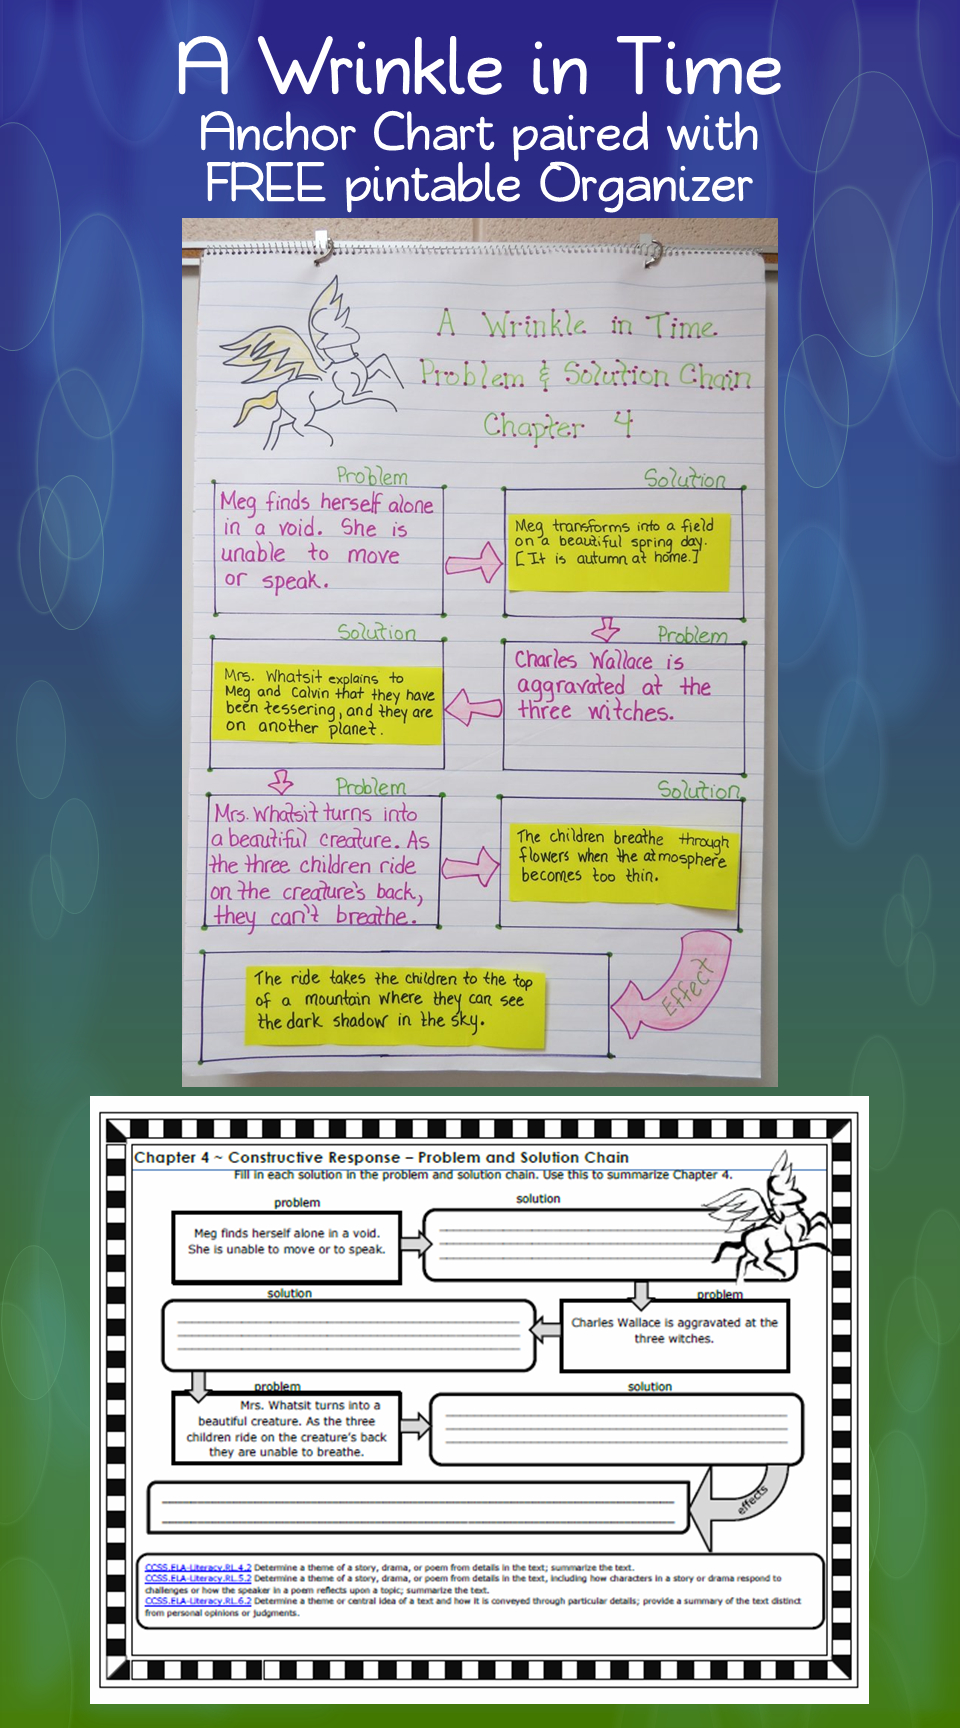 A Wrinkle in Time
Anchor Chart paired with
FREE pintable Organizer
A Wrinkle in Time
Problem & Solution Chain
Chapter 4
Problem
Meg finds herself alone
in a void. She is
unable to move
or speak.
Solution
Meg transforms into a field
on a beautiful spring day.
[It is autumn at home.]
Problem
Charles Wallace is
aggravated at the
three witches.
Solution
Mrs. Whatsit explains to
Meg and Calvin that they have
been tessering, and they are
on another planet.
Problem
Mrs. Whatsit turns into
a beautiful creature. As
the three children ride
on the creature's back,
they can't breathe.
Solution
The children breathe through
flowers when the atmosphere
becomes too thin.
Effect
The ride takes the children to the top
of a mountain where they can see
the dark shadow in the sky.
Chapter 4 ~ Constructive Response – Problem and Solution Chain
Fill in each solution in the problem and solution chain. Use this to summarize Chapter 4.
problem
Meg finds herself alone in a void.
She is unable to move or to speak.
solution
problem
Charles Wallace is aggravated at the
three witches.
solution
problem
Mrs. Whatsit turns into a
beautiful creature. As the three
children ride on the creature's back
they are unable to breathe.
solution
effects
CCSS.ELA-Literacy.RL.4.2 Determine a theme of a story, drama, or poem from details in the text; summarize the text.
CCSS.ELA-Literacy.RL.5.2 Determine a theme of a story, drama, or poem from details in the text, including how characters in a story or drama respond to
challenges or how the speaker in a poem reflects upon a topic; summarize the text.
CCSS.ELA-Literacy.RL.6.2 Determine a theme or central idea of a text and how it is conveyed through particular details; provide a summary of the text distinct
from personal opinions or judgments.